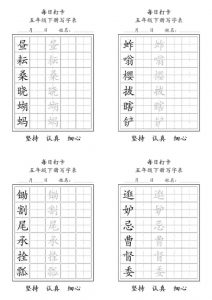 每日打卡
五年级下册写字表
月 日 姓名：
昼 昼
耘 耘
桑 桑
晓 晓
蝴 蝴
蚂 蚂
坚持 认真 细心
每日打卡
五年级下册写字表
月 日 姓名：
蚱 蚱
嗡 嗡
樱 樱
拔 拔
瞎 瞎
铲 铲
坚持 认真 细心
每日打卡
五年级下册写字表
月 日 姓名：
锄 锄
割 割
尾 尾
承 承
拴 拴
瓢 瓢
坚持 认真 细心
每日打卡
五年级下册写字表
月 日 姓名：
逛 逛
妒 妒
忌 忌
曹 曹
督 督
委 委
坚持 认真 细心